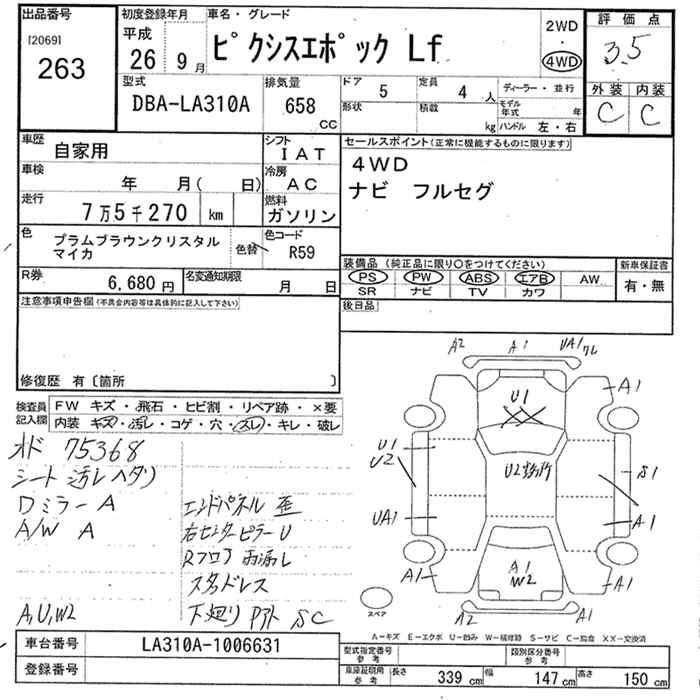 出品番号 初度登録年月 車名・グレード 評価点
[2069] 平成 2WD
263 26年 9月 ピクシスエポック Lf ・ 3.5
4WD
型式 排気量 ドア 5 定員 4人 ディーラー・並行 外装 内装
DBA-LA310A 658 cc 形状 積載 kg モデル年式 年 C C
ハンドル 左・右
車歴 自家用 シフト IAT セールスポイント(正常に機能するものに限ります)
車検 年 月( 日) 冷房 AC 4WD
走行 7万5千270 km 燃料 ガソリン ナビ フルセグ
色 プラムブラウンクリスタル 色替 色コード R59
マイカ
装備品(純正品に限り○をつけてください) 新車保証書
R券 6,680円 名変通知期限 月 日 PS PW ABS エアB AW 有・無
SR ナビ TV カワ
注意事項申告欄(不具合内容等は具体的に記入して下さい) 後日品
修復歴 有〔箇所 〕
検査員 FW キズ・飛石・ヒビ割・リペア跡・×要
記入欄 内装 キズ・汚レ・コゲ・穴・スレ・キレ・破レ
オド 75368
シート汚レ ヘタリ
ワミラーA エンドパネル 歪
A/W A 右センターピラーU
Rフロア 雨漏レ
スタッドレス
A,U,W2 下廻り PアトSC
A2 A1 UA1 ワレ
A1
U1
U1
U2
U2
S1
UA1 A1
A1 A1
W2 A1
スペア A2 A1
A－キズ E－エクボ U－凹み W－補修跡 S－サビ C－腐食 XX－交換済
車台番号 LA310A-1006631
登録番号
型式指定番号 参考 類別区分番号 参考
車庫証明用 参考 長さ 339 cm 幅 147 cm 高さ 150 cm